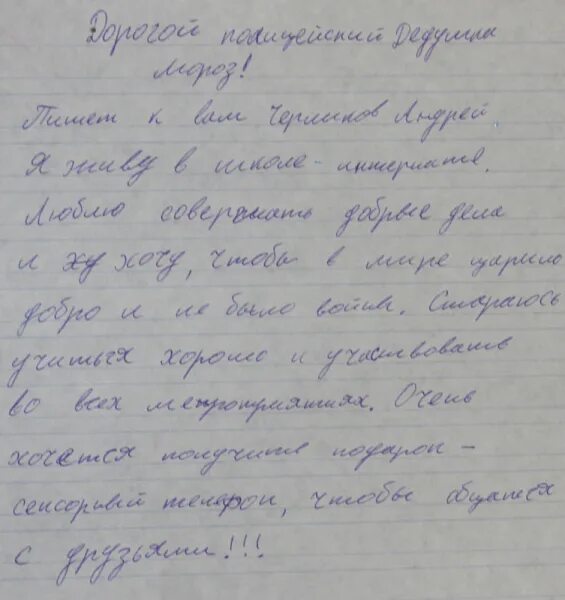 Дорогой полицейский Дедушка
Мороз!
Пишет к вам Черликов Андрей.
Я живу в школе-интернате.
Люблю совершать добрые дела
и ху хочу, чтобы в мире царило
добро и не было войны. Стараюсь
учиться хорошо и участвовать
во всех мепроприятиях. Очень
хочется получить подарок -
сенсорный телефон, чтобы общаться
с друзьями!!!